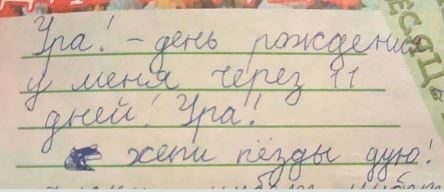 Ура! – день рождения
у меня через 11
дней! Ура!
хепи пёзды дую!
ЕСЯЦ